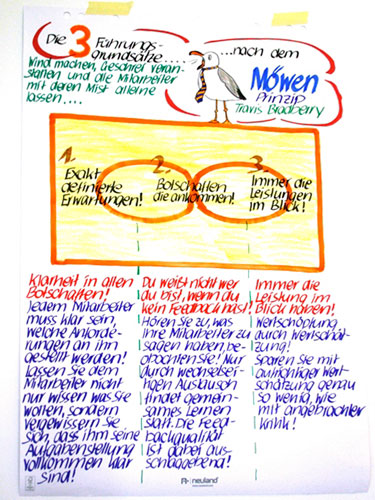 Die 3 Führungs-
Grundsätze....
...nach dem
Möwen
Prinzip
Travis Bradberry
Wind machen, Geschrei veran-
stalten und die Mitarbeiter
mit deren Mist alleine
lassen....
1.
Exakt
definierte
Erwartungen!
2.
Botschaften
die ankommen!
3.
Immer die
Leistungen
im Blick!
Klarheit in allen
Botschaften!
Jedem Mitarbeiter
muss klar sein,
welche Anforde-
rungen an ihn
gestellt werden!
Lassen Sie dem
Mitarbeiter nicht
nur wissen was Sie
wollen, sondern
vergewissern Sie
sich, dass ihm seine
Aufgabenstellung
vollkommen klar
sind!
Du weißt nicht wer
du bist, wenn du
kein Feedback hast!
Hören Sie zu, was
Ihre Mitarbeiter zu
sagen haben be-
obachten Sie! Nur
durch wechselsei-
tigen Austausch
findet gemein-
sames Lernen
statt. Die Feed-
backqualität
ist dabei aus-
schlaggebend!
Immer die
Leistung im
Blick haben!
Wertschöpfung
durch Wertschät-
zung!
Sparen Sie mit
aufrichtiger Wert-
schätzung genau
so wenig, wie
mit angebrachter
Kritik!
neuland